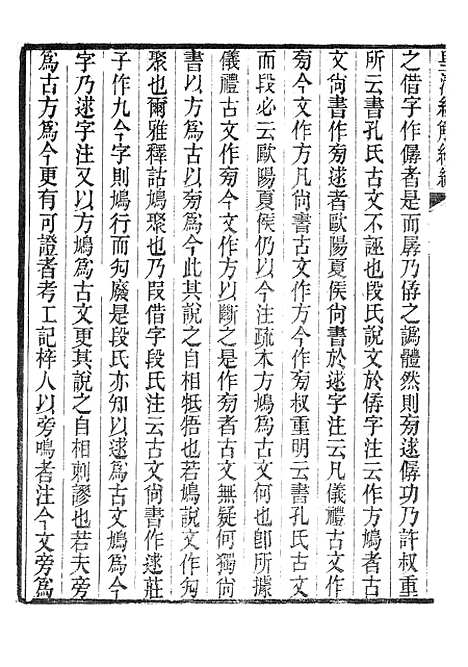 皇清經解續編
之借字作僝者是而孱乃僝之譌體然則㫄逑僝功乃許叔重
所云書孔氏古文不誣也段氏說文於僝字注云作方鳩者古
文尙書作㫄逑者歐陽夏侯尙書於逑字注云凡儀禮古文作
㫄今文作方凡尙書古文作方今文作㫄叔重明云書孔氏古文
而段必云歐陽夏侯仍以今注疏本方鳩爲古文何也卽所據
儀禮古文作㫄今文作方以斷之是作㫄者古文無疑何獨尙
書以方爲古以㫄爲今此其說之自相牴牾也若鳩說文作勼
聚也爾雅釋詁鳩聚也乃叚借字段氏注云古文尙書作逑莊
子作九今字則鳩行而勼廢是段氏亦知以逑爲古文鳩爲今
字乃逑字注又以方鳩爲古文更其說之自相刺謬也若夫㫄
爲古方爲今更有可證者考工記梓人以旁鳴者注今文旁爲